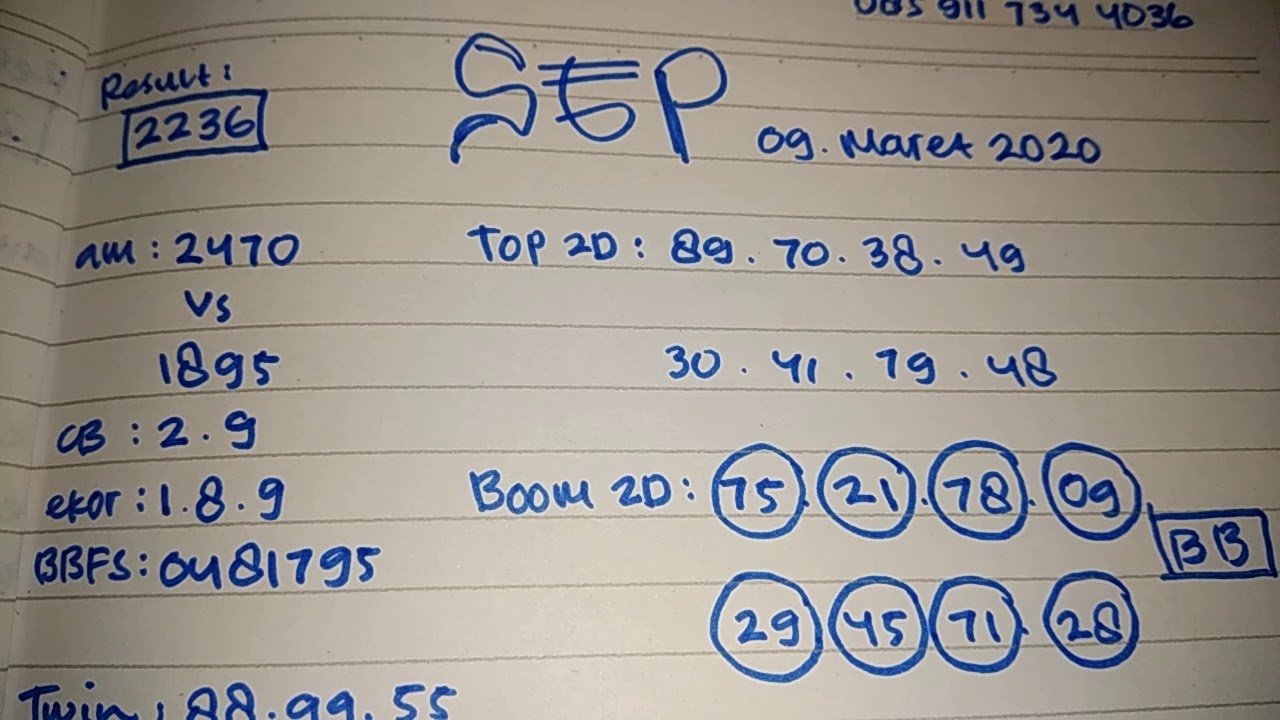 085 911 734 4036
Result:
2236
SGP
09. Maret 2020
am : 2470
Vs
1895
CB : 2.9
ekor : 1.8.9
BBFS : 0481795
Twin : 88.99.55
Top 2D : 89. 70. 38. 49
30. 41. 79. 48
Boom 2D : 75. 21. 78. 09.
29 45 71. 28
BB